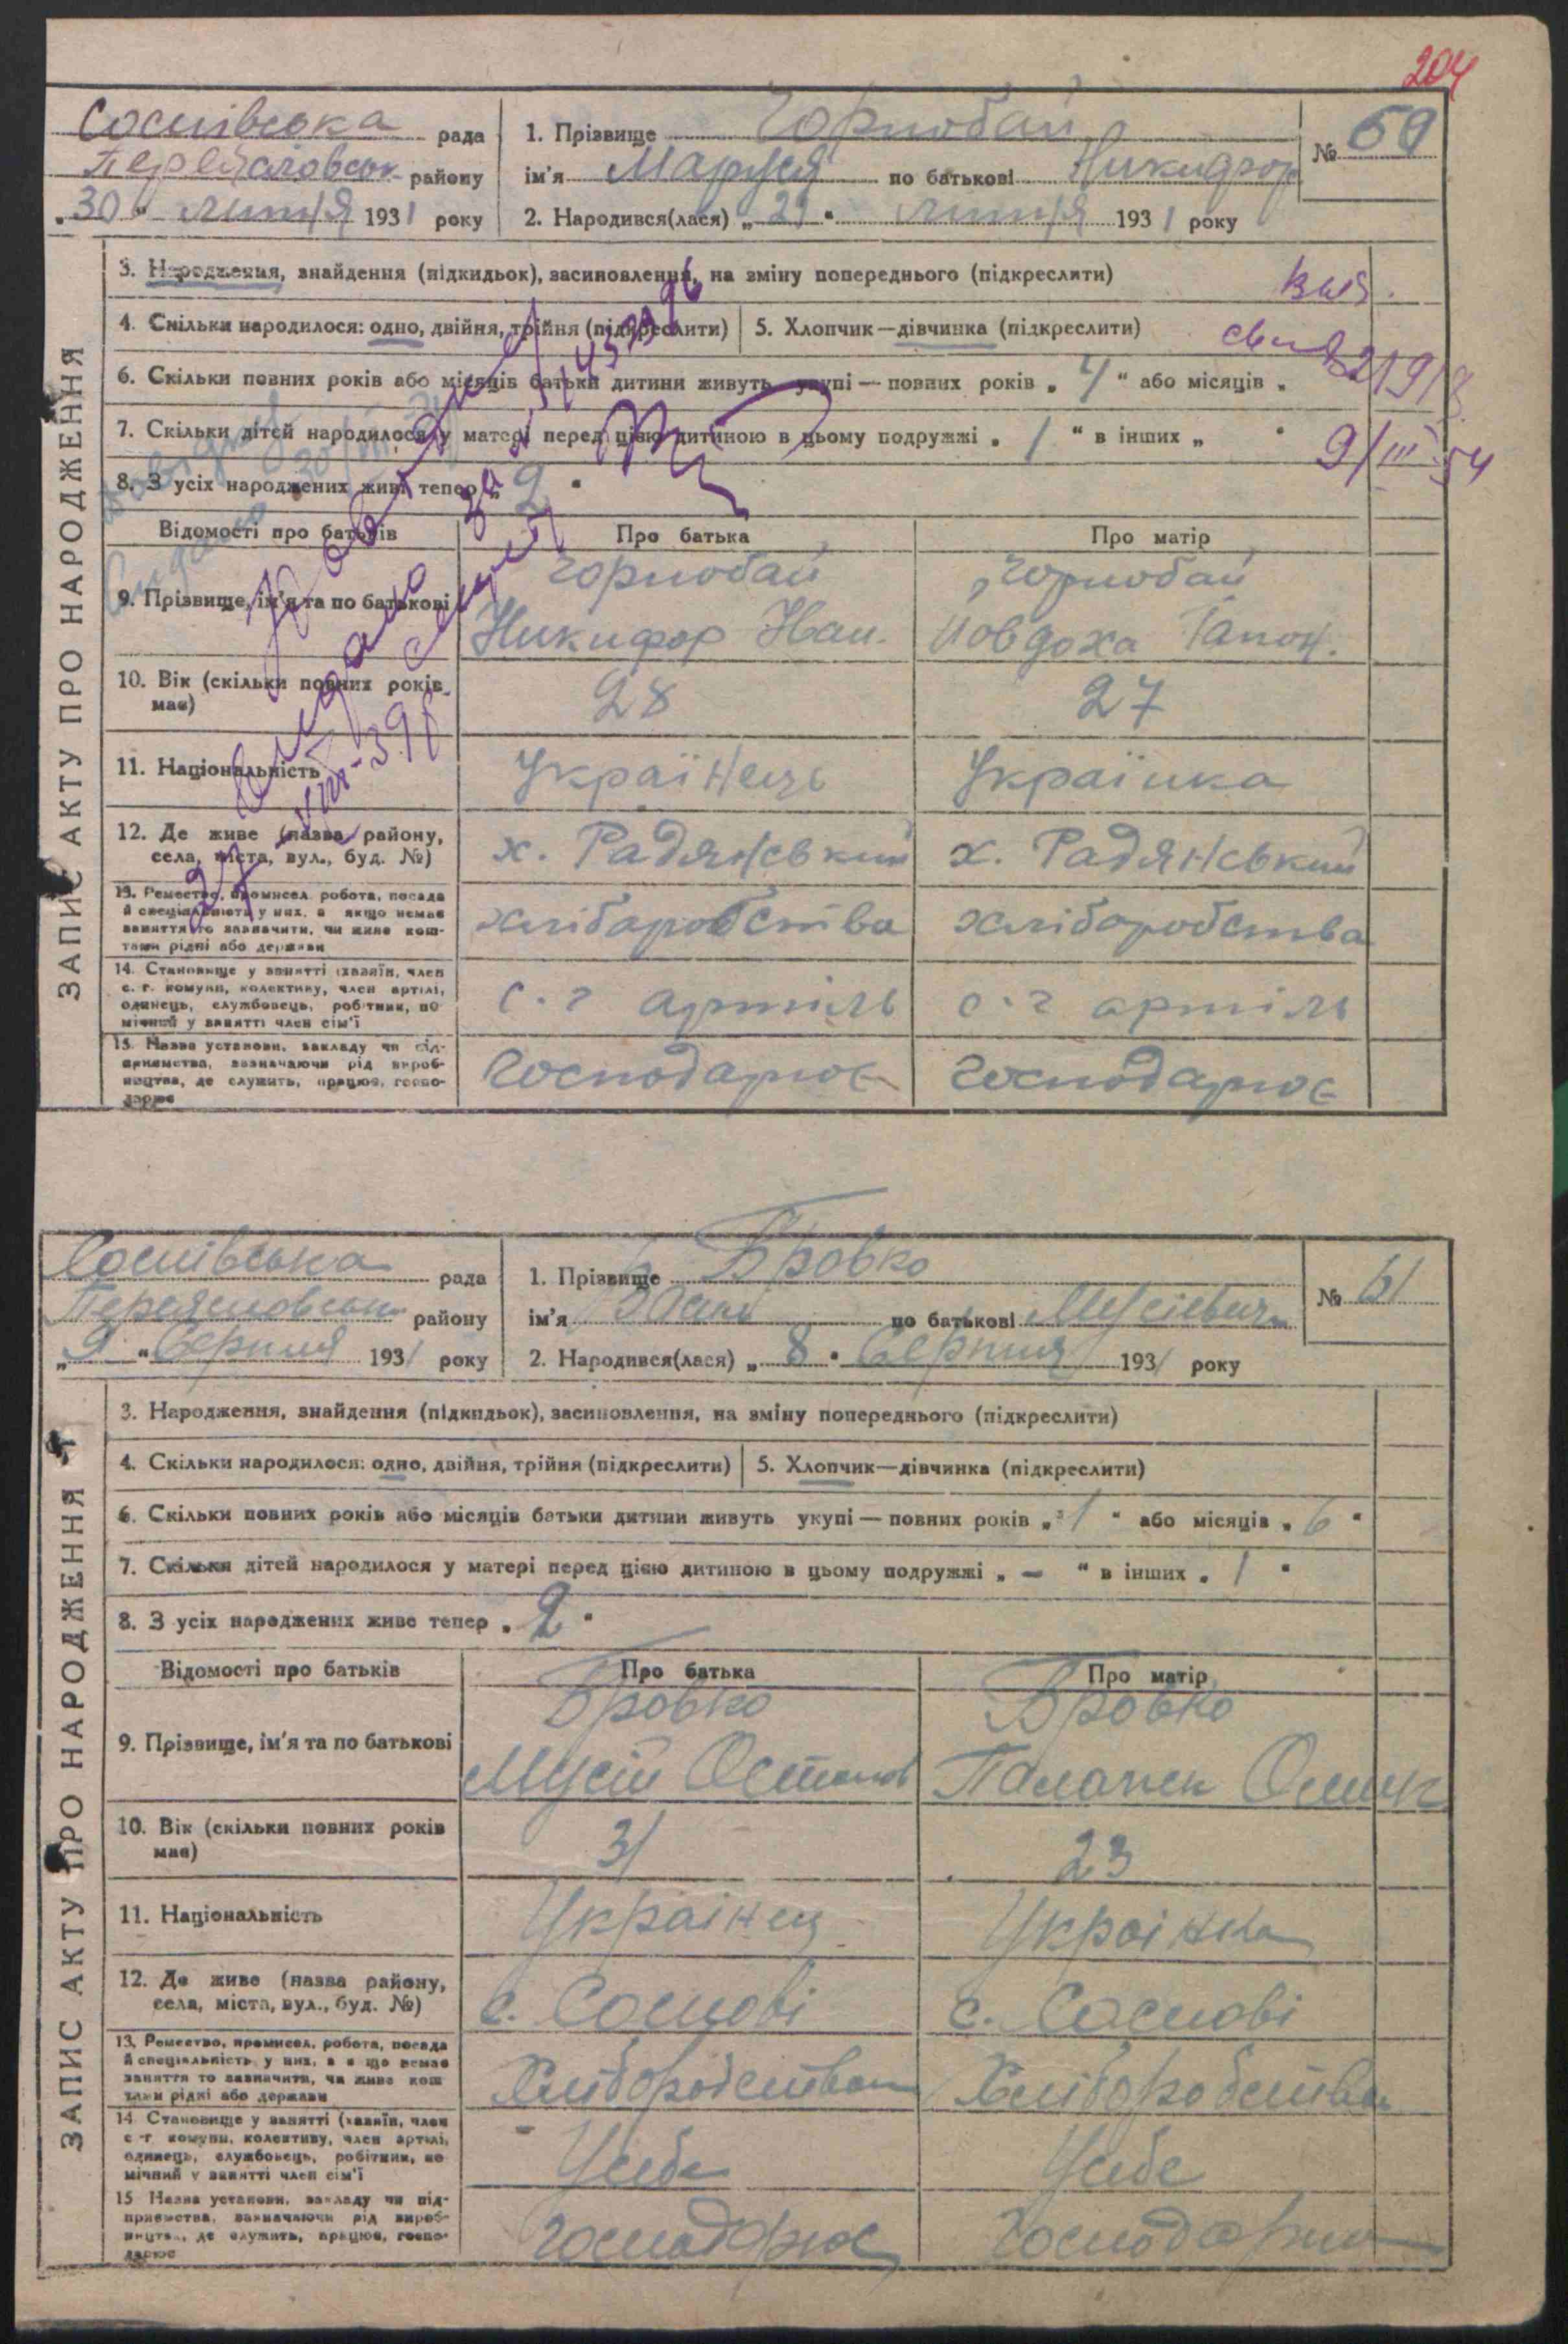 204
Соснівська рада
Переяславськ району
„30“ липня 1931 року
1. Прізвище Чорнобай
ім'я Маруся по батькові Никифор
№ 59
2. Народився(лася) „29“ липня 1931 року
ЗАПИС АКТУ ПРО НАРОДЖЕННЯ
3. Народження, знайдення (підкидьок), засиновлення, на зміну попереднього (підкреслити)
4. Скільки народилося: одно, двійня, трійня (підкреслити) 5. Хлопчик—дівчинка (підкреслити)
6. Скільки повних років або місяців батьки дитини живуть укупі — повних років „ 4 “ або місяців „
7. Скільки дітей народилося у матері перед цією дитиною в цьому подружжі „ 1 “ в інших „ “
9/III 54
8. З усіх народжених живе тепер „ 2 “
Відомості про батьків Про батька Про матір
9. Прізвище, ім'я та по батькові
Чорнобай Чорнобай
Никифор Іван. Йовдоха
10. Вік (скільки повних років має) 28 27
11. Національність Українець Українка
12. Де живе (назва району, села, міста, вул., буд. №)
х. Радянський х. Радянський
13. Ремество, промисел, робота, посада й спеціяльність у них, а якщо немає заняття то зазначити, чи живе коштами рідні або держави
хлібаробства хлібаробства
14. Становище у занятті (хазяїн, член с.-г. комуни, колективу, член артілі, одинець, службовець, робітник, помічний у занятті член сім'ї
с-г артіль с-г артіль
15. Назва установи, закладу чи підприємства, зазначаючи рід виробництва, де служить, працює, господарює
Господарює Господарює
Соснівська рада
Переясловськ району
„9“ Серпня 1931 року
1. Прізвище Бровко
ім'я по батькові Мусієвич
№ 61
2. Народився(лася) „8“ Серпня 1931 року
ЗАПИС АКТУ ПРО НАРОДЖЕННЯ
3. Народження, знайдення (підкидьок), засиновлення, на зміну попереднього (підкреслити)
4. Скільки народилося: одно, двійня, трійня (підкреслити) 5. Хлопчик—дівчинка (підкреслити)
6. Скільки повних років або місяців батьки дитини живуть укупі — повних років „ 1 “ або місяців „ 6 “
7. Скільки дітей народилося у матері перед цією дитиною в цьому подружжі „ — “ в інших „ 1 “
8. З усіх народжених живе тепер „ 2 “
Відомості про батьків Про батька Про матір
9. Прізвище, ім'я та по батькові
Бровко Бровко
Мусій
10. Вік (скільки повних років має) 31 23
11. Національність Українец Українка
12. Де живе (назва району, села, міста, вул., буд. №)
с. Соснові с. Соснові
13. Ремество, промисел, робота, посада й спеціяльність у них, а якщо немає заняття то зазначити, чи живе коштами рідні або держави
Хліборобства Хліборобства
14. Становище у занятті (хазяїн, член с.-г. комуни, колективу, член артілі, одинець, службовець, робітник, помічний у занятті член сім'ї
Усебе Усебе
15. Назва установи, закладу чи підприємства, зазначаючи рід виробництва, де служить, працює, господарює
Господарює